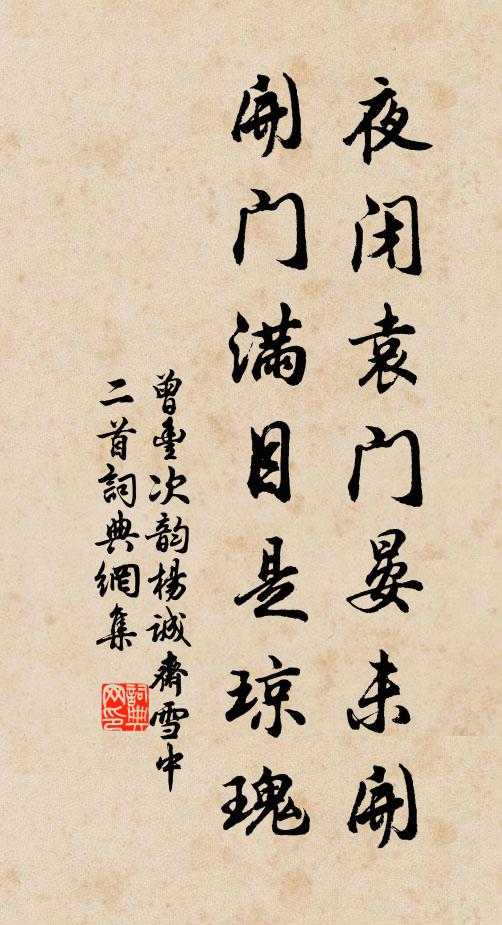 夜闭袁门晏未開
開门满目是琼瑰
曾豊次韵楊诚齋雪中
二首詞典網集
詞典
网印